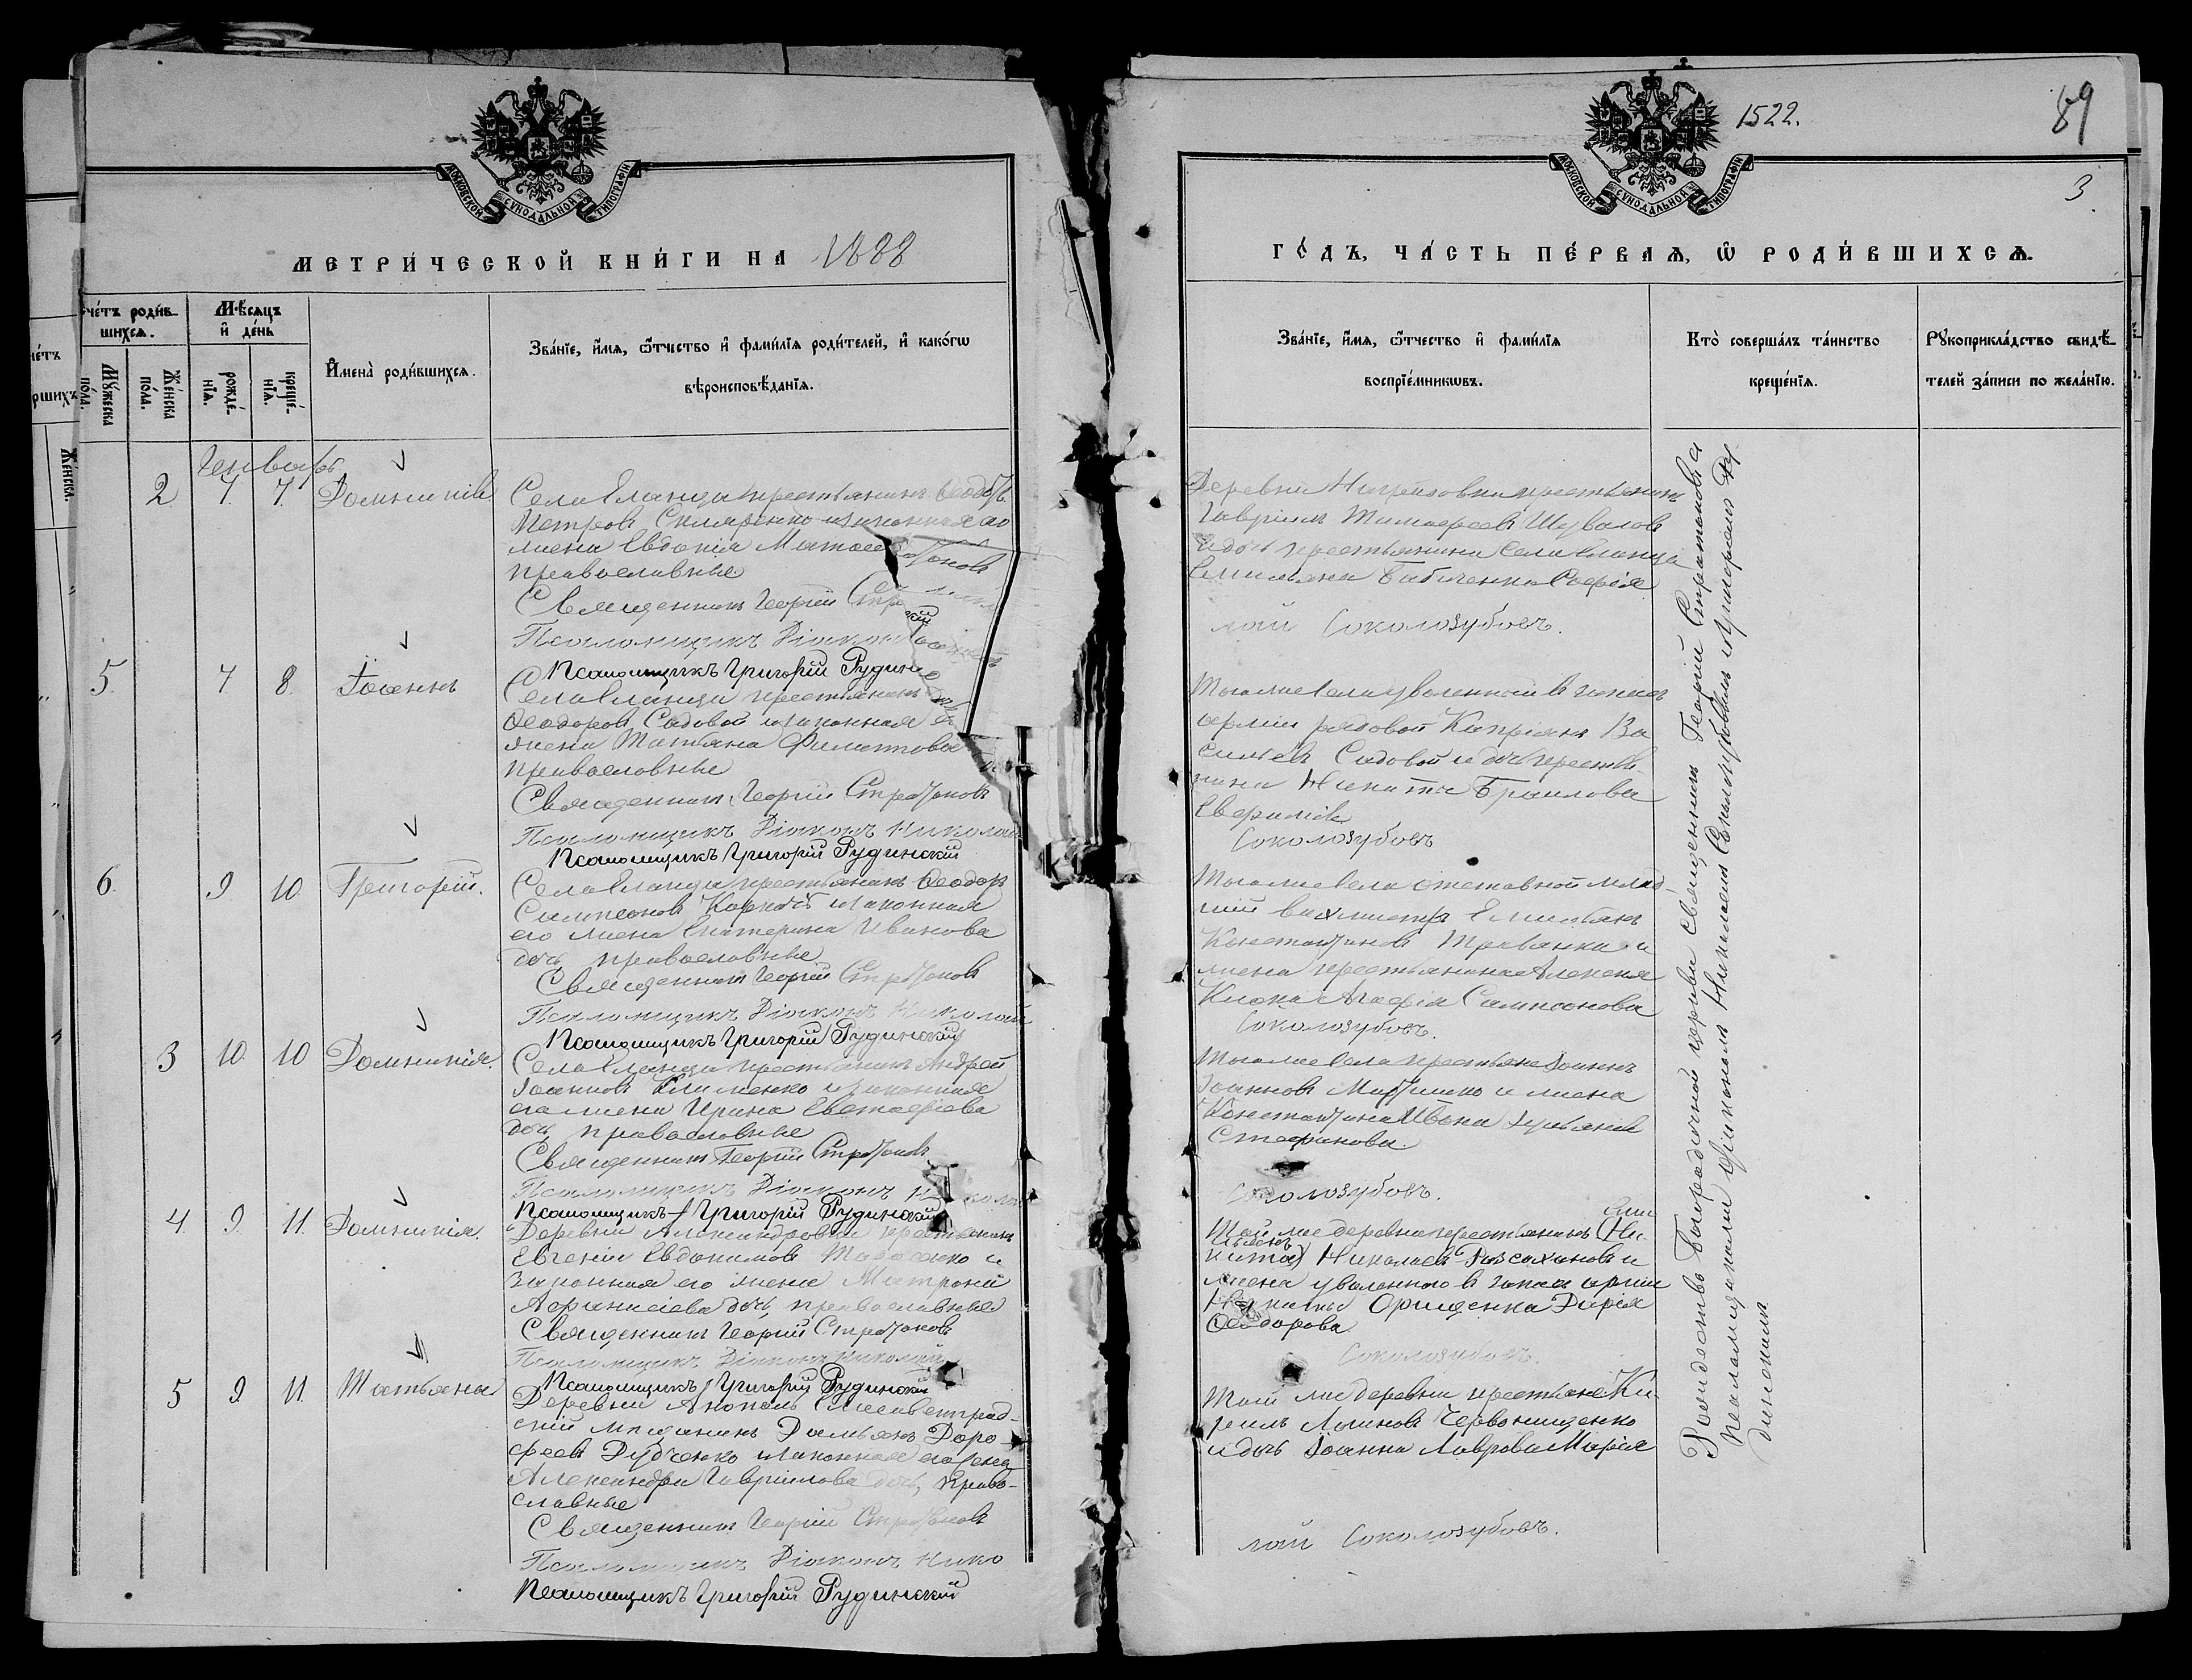 МОСКОВСКОЙ СѴНОДАЛЬНОЙ ТИПОГРАФІИ
МЕТРИ́ЧЕСКОЙ КНИ́ГИ НА 1888
Сче́тъ роди́вшихся.
Мѣ́сяцъ и҆ де́нь
Му́жеска по́ла.
Же́нска по́ла.
рожде́нїѧ.
креще́нїѧ.
И҆мена̀ роди́вшихсѧ.
Зва́нїе, и҆́мѧ, ѻ҆́тчество и҆ фами́лїѧ роди́телей, и҆ како́гѡ
вѣроисповѣ́данїѧ.
Генварь
2 7. 7. Домникія
Села Еланца крестьянинъ Ѳеодоръ
Петровъ Скляренко и законная его
жена Евдокія
православные
Священникъ Георгій
Псаломщикъ Діаконъ
Псаломщикъ Григорій Рудинскій
5. 7 8. Іоаннъ
Села Еланца крестьянинъ
Ѳеодоровъ Садовой и законная его
жена Татіана Филиппова
православные
Священникъ Георгій Стратоновъ
Псаломщикъ Діаконъ Николай
Псаломщикъ Григорій Рудинскій
6. 9 10 Григорій.
Села Еланца крестьянинъ Ѳеодоръ
Сампсоновъ и законная
его жена Екатерина Иванова
дочь, православные
Священникъ Георгій Стратоновъ
Псаломщикъ Діаконъ Николай
Псаломщикъ Григорій Рудинскій
3 10. 10 Домникія.
Села Еланца крестьянинъ Андрей
Іоанновъ Клименко и законная
его жена Ирина Евстафіева
дочь, православные
Священникъ Георгій Стратоновъ
Псаломщикъ Діаконъ Николай
Псаломщикъ Григорій Рудинскій
4. 9 11. Домникія.
Деревни Александровки крестьянинъ
Евгеній Евдокимовъ Тарасенко и
законная его жена Матрона
Аѳанасіева дочь, православные
Священникъ Георгій Стратоновъ
Псаломщикъ Діаконъ Николай
Псаломщикъ Григорій Рудинскій
5 9 11. Татьяна
Деревни Анополь Елисаветград-
скій мѣщанинъ Даміанъ Доро-
феевъ Дубченко и законная его жена
Александра Гавріилова дочь, право-
славные
Священникъ Георгій Стратоновъ
Псаломщикъ Діаконъ Нико
Псаломщикъ Григорій Рудинскій
1522.
89
3.
МОСКОВСКОЙ СѴНОДАЛЬНОЙ ТИПОГРАФІИ
ГО́ДЪ, ЧА́СТЬ ПЕ́РВАѦ, Ѽ РОДИ́ВШИХСѦ.
Зва́нїе, и҆́мѧ, ѻ҆́тчество и҆ фами́лїѧ
воспрїе́мникѡвъ.
Кто̀ соверша́лъ та́инство
креще́нїѧ.
Рꙋкоприкла́дство свидѣ́-
телей за́писи по жела́нїю.
Деревни крестьянинъ
Гавріилъ Тимофеевъ Шуваловъ
и дочь крестьянина села Еланца
Емильяна Бабиченка Софія
лай Соколозубовъ.
Того же села уволенный въ запасъ
арміи рядовой Кипріянъ Ва
сильевъ Садовой и дочь крестья-
нина Никиты Браилова
Евфимія
Соколозубовъ
Того же села отставной млад-
шій вахмистръ Емиліанъ
Константиновъ Травянка и
жена крестьянина Алексея
Агафія Сампсонова
Соколозубовъ.
Того же села крестьяне Іоаннъ
Іоанновъ и жена
Константина Ивона Іуліанія
Стефанова.
Соколозубовъ.
Той же деревни крестьянинъ (Ни-
кита) Николаевъ и
жена уволеннаго въ запасъ арміи
Никиты Орищенка Дарія
Ѳеодорова
Соколозубовъ.
Той же деревни крестьяне Ки-
риллъ Червонищенко
и дочь Іоанна Лаврова Марія
лай Соколозубовъ.
Рождество-Богородичной церкви Священникъ Георгій Стратоновъ съ
псаломщиками діакономъ Николаемъ Соколозубовымъ и Григоріемъ Ру
динскимъ